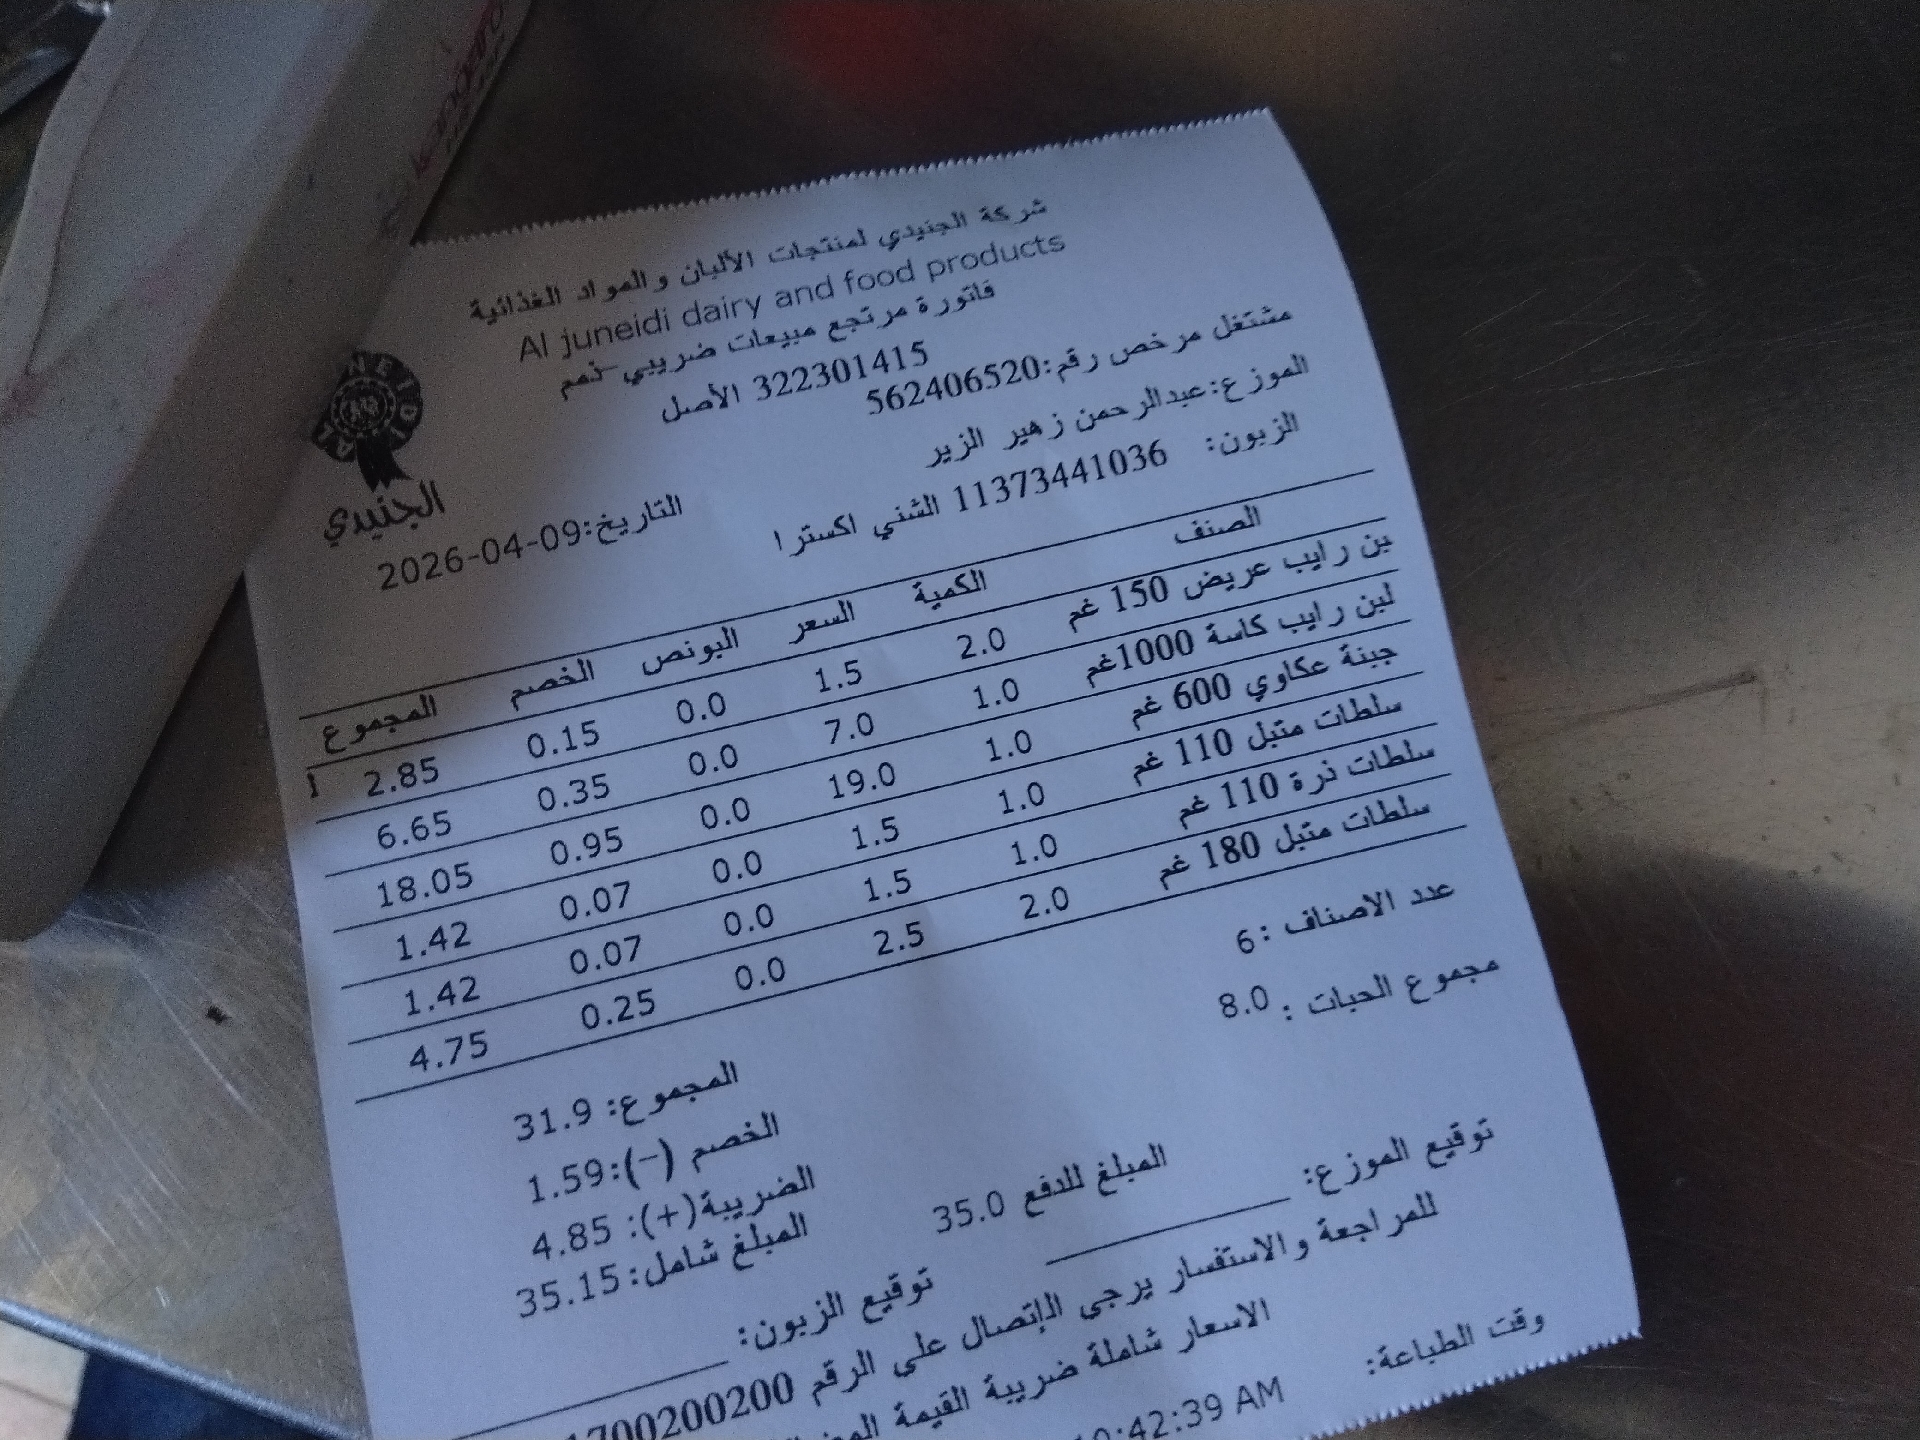 شركة الجنيدي لمنتجات الألبان و المواد الغذائية
Al juneidi dairy and food products
فاتورة مرتجع مبيعات ضريبي-ذمم
322301415 الأصل
مشتغل مرخص رقم:562406520
الموزع:عبدالرحمن زهير الزير
الزبون: 11373441036 الشني اكسترا
JNEIDI AL
الجنيدي
التاريخ:2026-04-09
الصنف الكمية السعر البونص الخصم المجموع
بن رايب عريض 150 غم 2.0 1.5 0.0 0.15 2.85
لبن رايب كاسة 1000غم 1.0 7.0 0.0 0.35 6.65
جبنة عكاوي 600 غم 1.0 19.0 0.0 0.95 18.05
سلطات متبل 110 غم 1.0 1.5 0.0 0.07 1.42
سلطات ذرة 110 غم 1.0 1.5 0.0 0.07 1.42
سلطات متبل 180 غم 2.0 2.5 0.0 0.25 4.75
عدد الاصناف :6
مجموع الحبات : 8.0
المجموع: 31.9
الخصم (-):1.59
الضريبة(+): 4.85
المبلغ شامل:35.15
المبلغ للدفع 35.0
توقيع الموزع:
توقيع الزبون:
للمراجعة و الاستفسار يرجى الإتصال على الرقم 1700200200
الاسعار شاملة ضريبة القيمة
وقت الطباعة: :42:39 AM